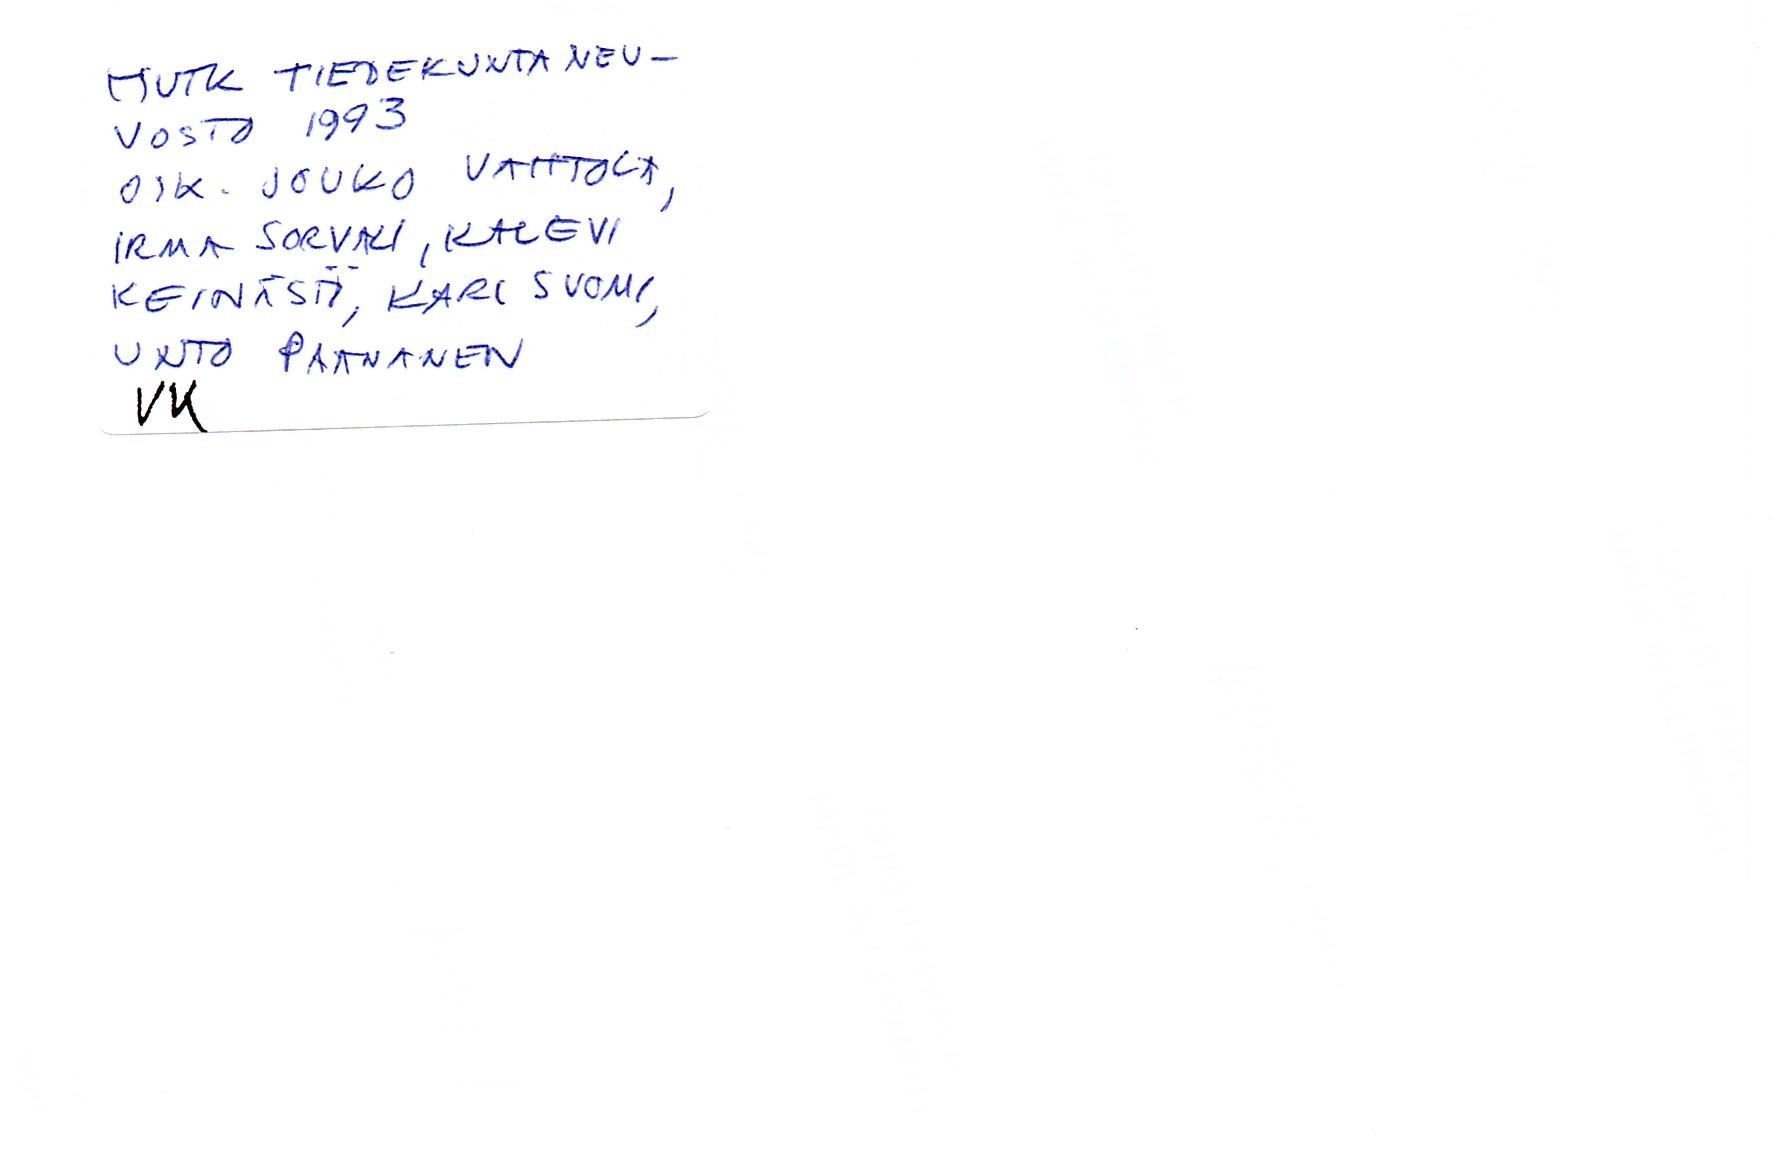 HUTK TIEDEKUNTANEU-
VOSTO 1993
OIK. JOUKO VAHTOLA,
IRMA SORVALI, KALEVI
KEINÄSTÖ, KARI SUOMI,
UNTO PAANANEN
VK